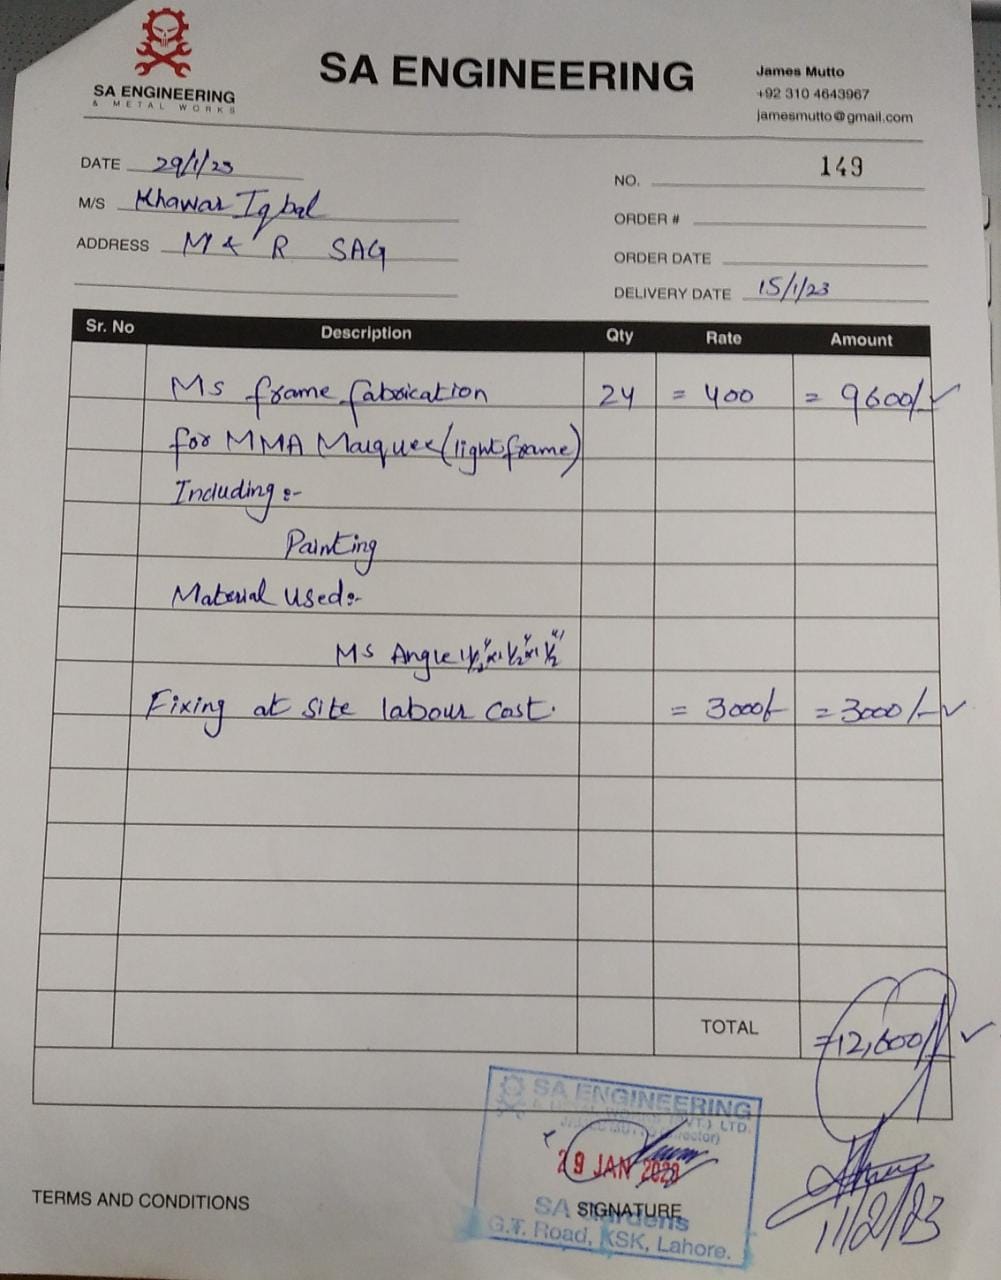 SA ENGINEERING
& METAL WORKS
SA ENGINEERING
James Mutto
+92 310 4643967
jamesmutto@gmail.com
DATE 29/1/23
NO. 149
M/S Khawar Iqbal
ORDER #
ADDRESS M & R SAG
ORDER DATE
DELIVERY DATE 15/1/23
Sr. No Description Qty Rate Amount
Ms frame fabrication 24 = 400 = 9600/-
for MMA Marquee (light frame)
Including :-
Painting
Material Used:-
Ms Angle 1½"x1½"x1½"
Fixing at site labour cost. = 3000/- = 3000/-
TOTAL =12,600/-
SA ENGINEERING
& METAL WORKS (PVT.) LTD.
JAMES MUTTO (Director)
29 JAN 2023
SIGNATURE
SA Gardens
G.T. Road, KSK, Lahore.
TERMS AND CONDITIONS
11/2/23